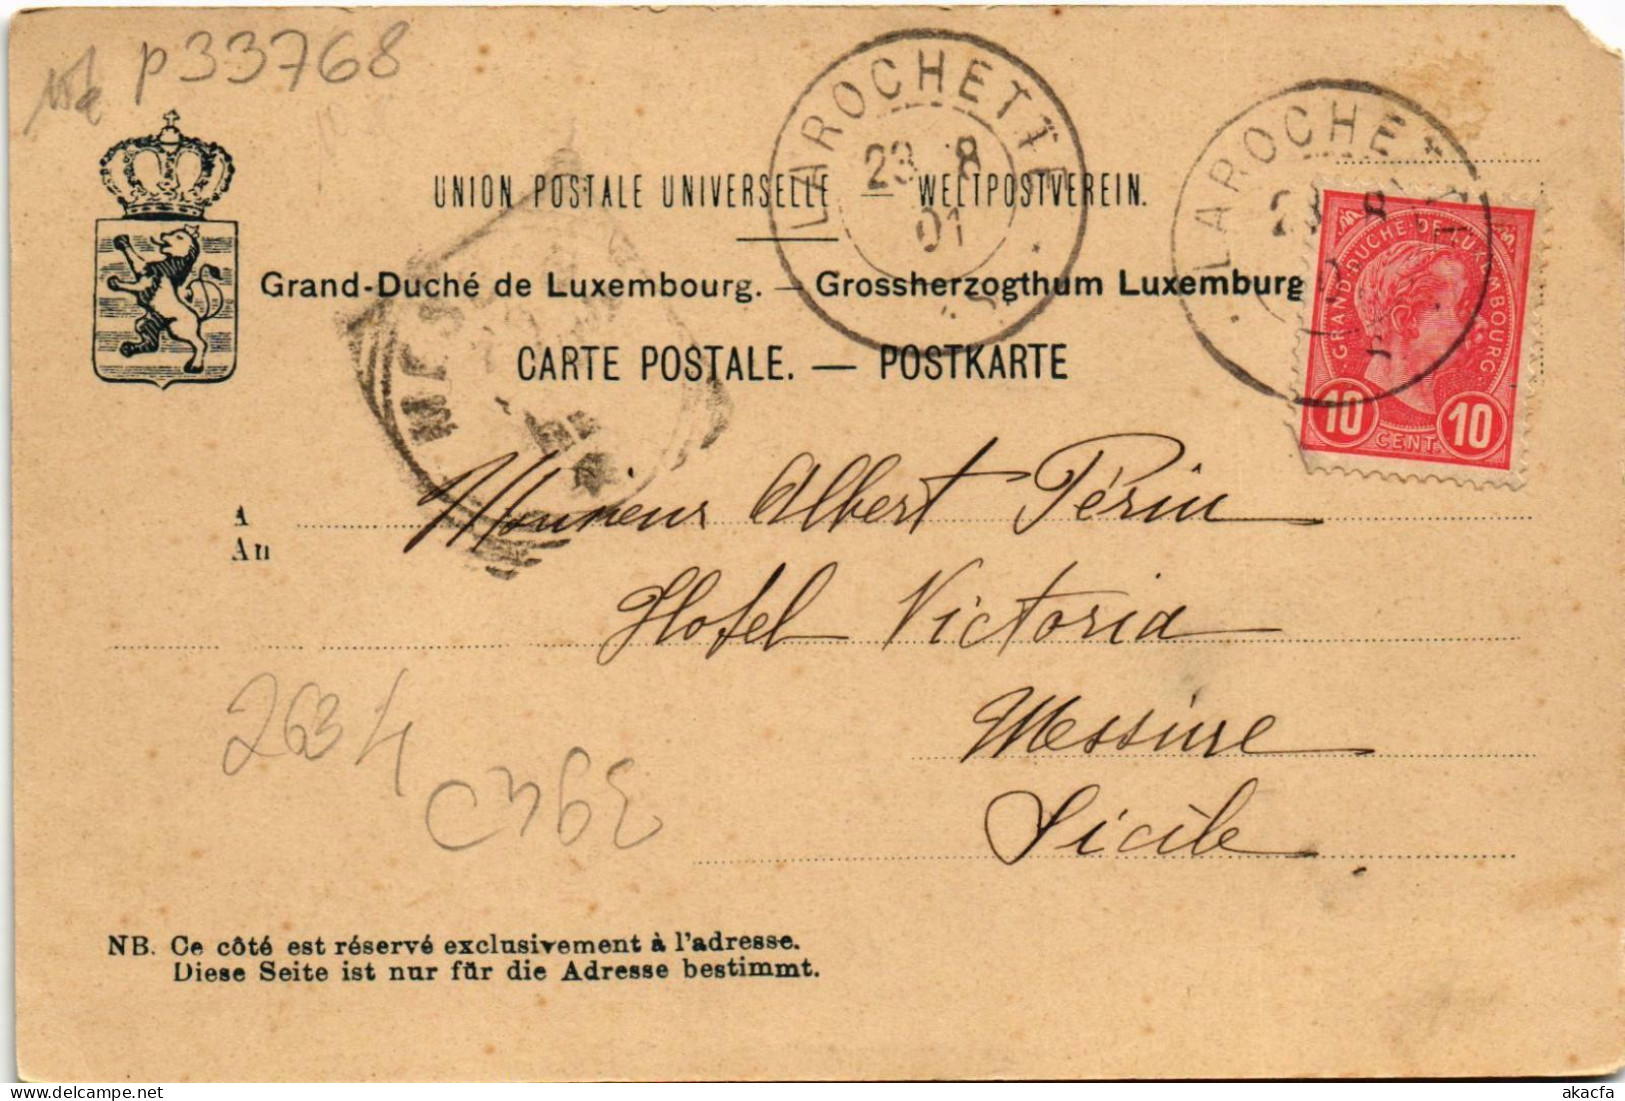 p33768
LAROCHETTE
23 8
01
LAROCHETTE
UNION POSTALE UNIVERSELLE — WELTPOSTVEREIN.
Grand-Duché de Luxembourg. — Grossherzogthum Luxemburg
CARTE POSTALE. — POSTKARTE
GRAND-DUCHÉ-DE-LUXEMBOURG.
10 CENT. 10
A Monsieur Albert Périn
An
Hotel Victoria
Messine
Sicile
2634
NB. Ce côté est réservé exclusivement à l'adresse.
Diese Seite ist nur für die Adresse bestimmt.
akacfa